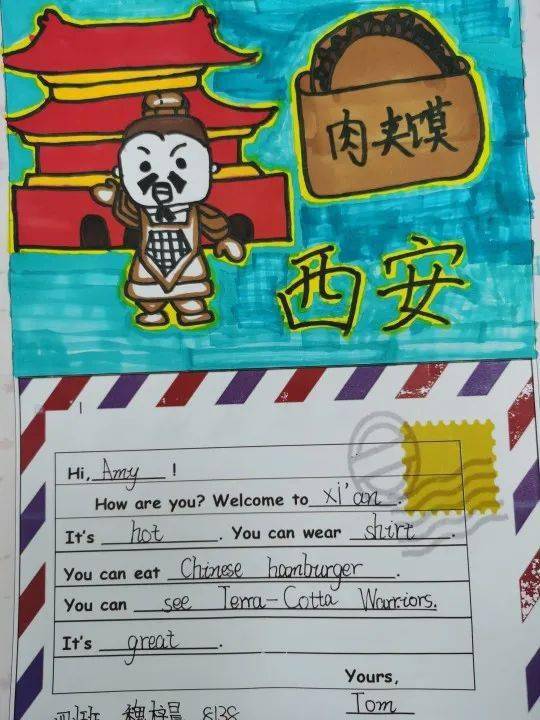 肉夹馍
西安
Hi, Amy !
How are you? Welcome to xi'an.
It's hot. You can wear shirt.
You can eat Chinese hamburger.
You can see Terra-Cotta Warriors.
It's great.
Yours,
Tom
8138